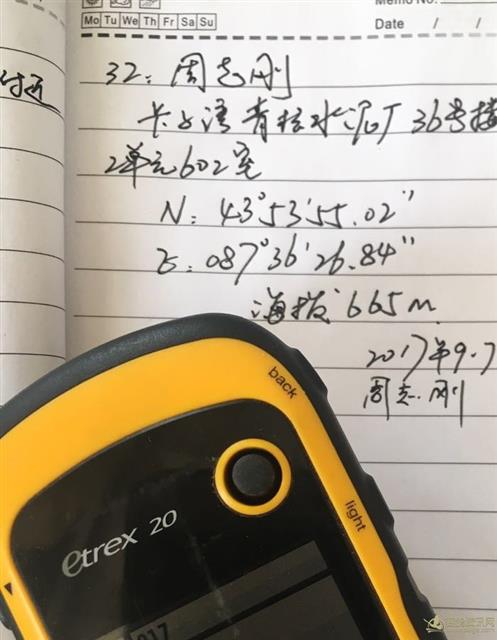 Memo No.
Mo Tu We Th Fr Sa Su
Date / /
付近
32: 周志刚
卡子湾青松水泥厂36号楼
2单元602室
N: 43°53'55.02"
E: 087°36'26.84"
海拔 665m
2017年9.7
周志刚
back
light
etrex 20
017